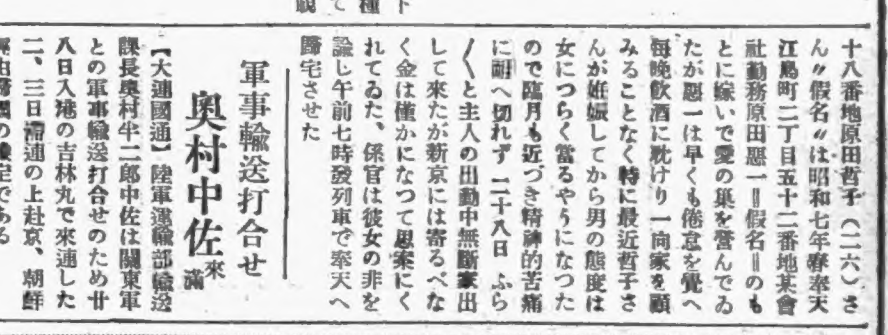 十八番地原田哲子（二六）さ
ん〃假名〃は昭和七年春奉天
江島町二丁目五十二番地某會
社勤務原田惡一‖假名‖のも
とに嫁いで愛の巢を營んでゐ
たが惡一は早くも倦怠を覺へ
毎晩飮酒に耽けり一向家を顧
みることなく特に最近哲子さ
んが姙娠してから男の態度は
女につらく當るやうになつた
ので臨月も近づき精神的苦痛
に耐へ切れず二十八日ふら
〳〵と主人の出勤中無斷家出
して來たが新京には寄るべな
く金は僅かになつて思案にく
れてゐた、係官は彼女の非を
諭し午前七時發列車で奉天へ
歸宅させた
軍事輸送打合せ
奧村中佐來滿
【大連國通】陸軍運輸部輸送
課長奧村半二郎中佐は關東軍
との軍事輸送打合せのため廿
八日入港の吉林丸で來連した
二、三日滯連の上赴京、朝鮮